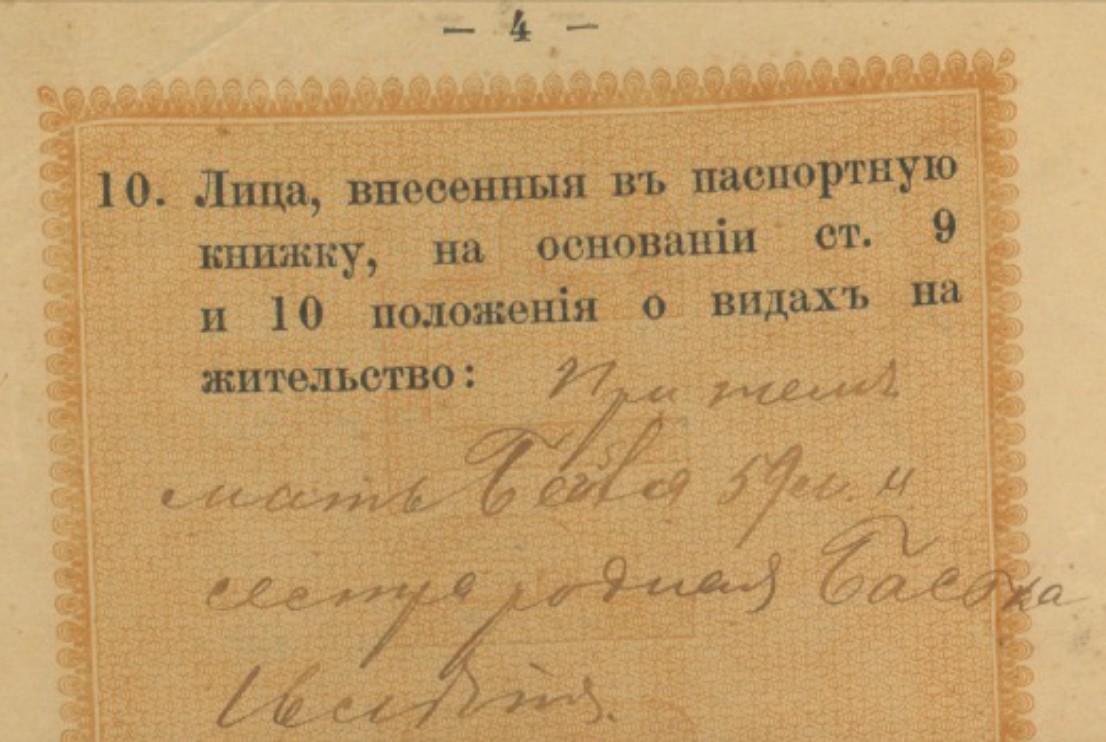 — 4 —
10. Лица, внесенныя въ паспортную
книжку, на основаніи ст. 9
и 10 положенія о видахъ на
жительство: При немъ
мать Бейля 59 л. и
сестра родная